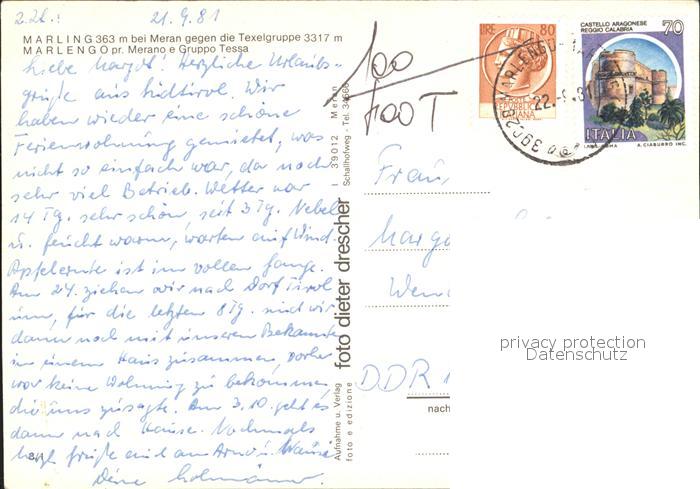 z.Zt.: 21.9.81
MARLING 363 m bei Meran gegen die Texelgruppe 3317 m
MARLENGO pr. Merano e Gruppo Tessa
Liebe Margot! Herzliche Urlaubs-
grüße aus Südtirol. Wir
haben wieder eine schöne
Ferienwohnung gemietet, was
nicht so einfach war, da noch
sehr viel Betrieb. Wetter war
14 Tg. sehr schön, seit 3 Tg. Nebel
u. feucht warm, warten auf Wind.
Apfelernte ist im vollen Gange.
Am 24. ziehen wir nach Dorf Tirol
um, für die letzten 8 Tg. sind wir
dann noch mit unseren Bekannten
in einem Haus zusammen, vorher
war keine Wohnung zu bekommen,
die uns zusagte. Am 3.10. geht es
dann nach Hause. Nochmals
herzl. Grüße auch an Arno u.
Deine
8/1
Aufnahme u. Verlag
foto e edizione
foto dieter drescher
I 39012 Meran
Schallhofweg - Tel. 34666
100
LIRE 80
POSTE
REPUBBLICA
ITALIANA
CASTELLO ARAGONESE
REGGIO CALABRIA
70
ITALIA
A. CIABURRO INC.
MARLENGO
39020
22.9.81
Frau
Margo
DDR
nach
privacy protection
Datenschutz